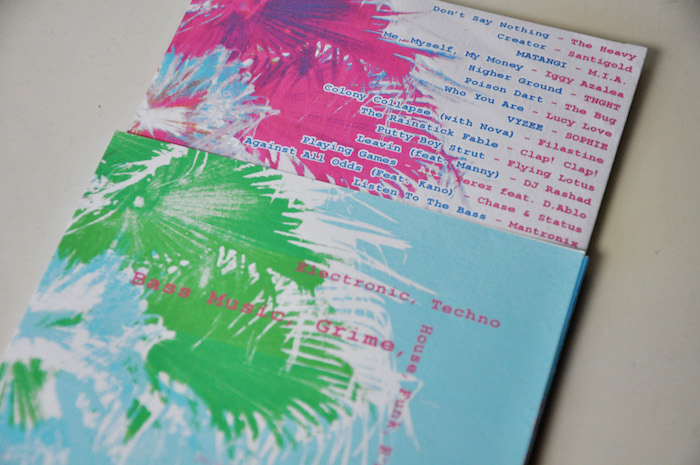 Don't Say Nothing - The Heavy
Creator - Santigold
MATANGI - M.I.A.
Me, Myself, My Money - Iggy Azalea
Higher Ground - TNGHT
Poison Dart - The Bug
Who You Are - Lucy Love
VYZEE - SOPHIE
Colony Collapse (with Nova) - Filastine
The Rainstick Fable - Clap! Clap!
Putty Boy Strut - Flying Lotus
Leavin (feat. Manny) - DJ Rashad
Playing Games - feat. D.Ablo
Against All Odds (Feat. Kano) - Chase & Status
Listen To The Bass - Mantronix
Electronic, Techno
Bass Music, Grime,
House, Funk,